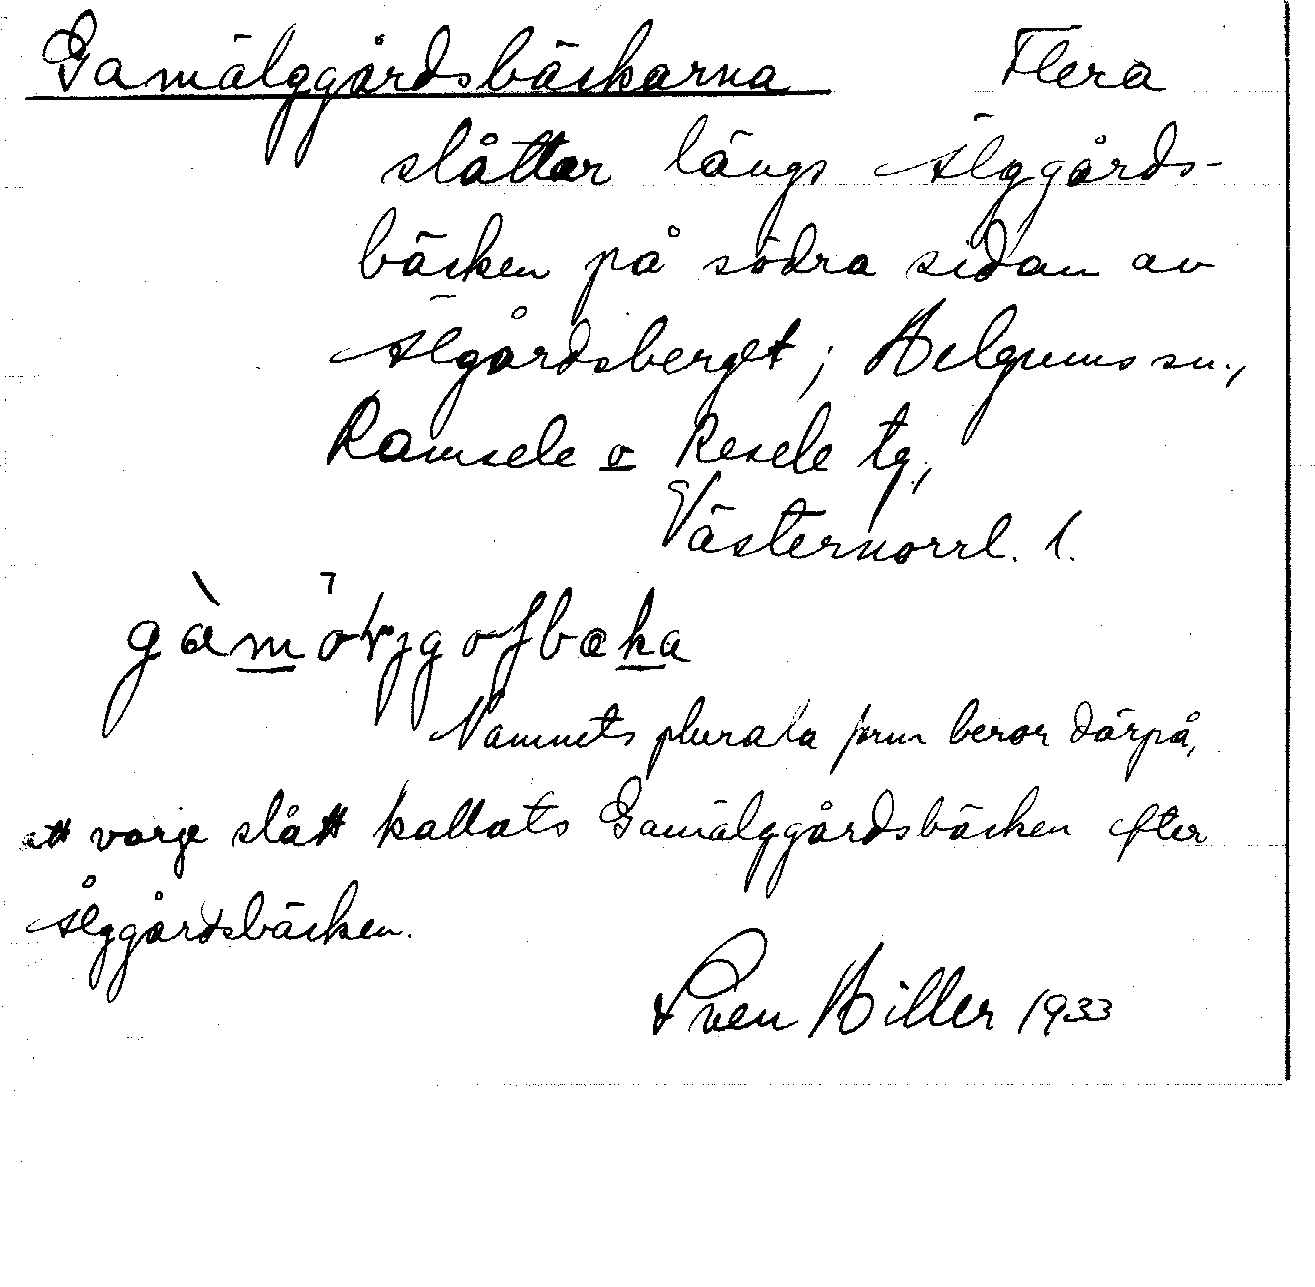 Gamälggårdsbäckarna Flera
slåttar längs Älggårds-
bäcken på södra sidan av
Älgårdsberget; Helgums sn.,
Ramsele o Resele tg,
Västernorrl. l.
Namnets plurala form beror därpå,
att varje slått kallats Gamälggårdsbäcken efter
Älggårdsbäcken.
Sven Hiller 1933